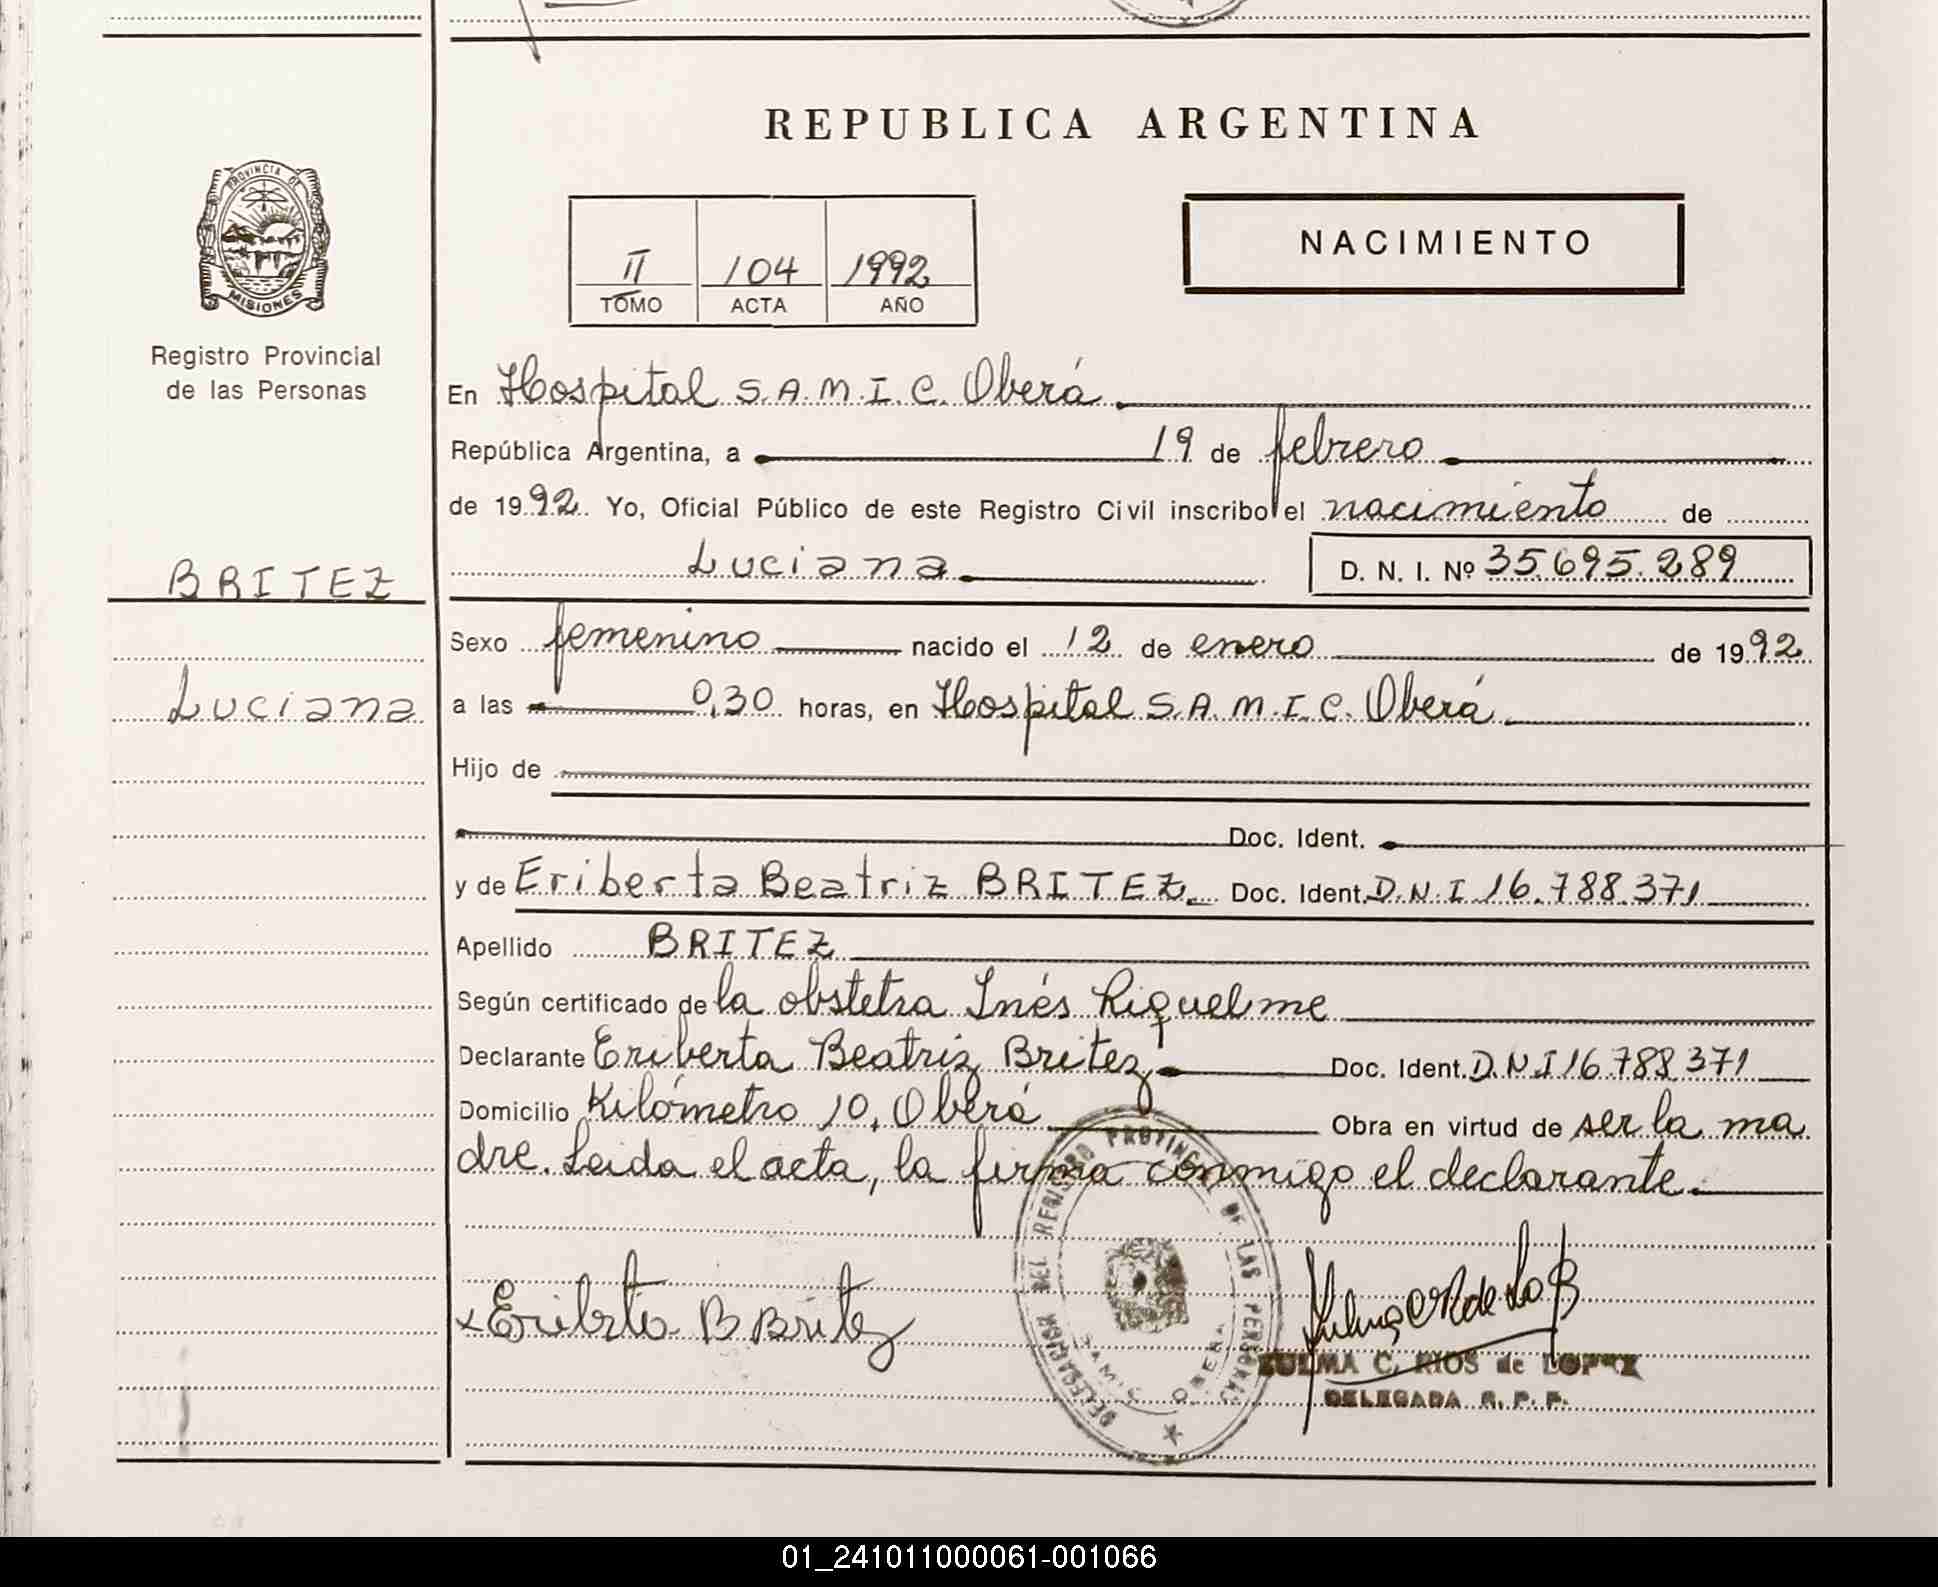 REPUBLICA ARGENTINA
PROVINCIA DE
MISIONES
Registro Provincial
de las Personas
II 104 1992
TOMO ACTA AÑO
NACIMIENTO
En Hospital S.A.M.I.C. Oberá
República Argentina, a 19 de febrero
de 1992. Yo, Oficial Público de este Registro Civil inscribo el nacimiento de
Luciana D. N. I. Nº 35.695.289
BRITEZ
Luciana
Sexo femenino nacido el 12 de enero de 1992
a las 0,30 horas, en Hospital S.A.M.I.C. Oberá
Hijo de
Doc. Ident.
y de Eriberta Beatriz BRITEZ. Doc. Ident. D.N.I 16.788.371
Apellido BRITEZ
Según certificado de la obstetra Inés Riquelme
Declarante Eriberta Beatriz Britez Doc. Ident. D.N.I 16.788.371
Domicilio Kilómetro 10, Oberá Obra en virtud de ser la ma
dre. Leida el acta, la firma conmigo el declarante.
DELEGACION DEL REGISTRO PROVINCIAL DE LAS PERSONAS
SAMIC OBERA
x Eriberta B Britez
ZULMA C. RIOS de LOPEZ
DELEGADA R. P. P.
01_241011000061-001066